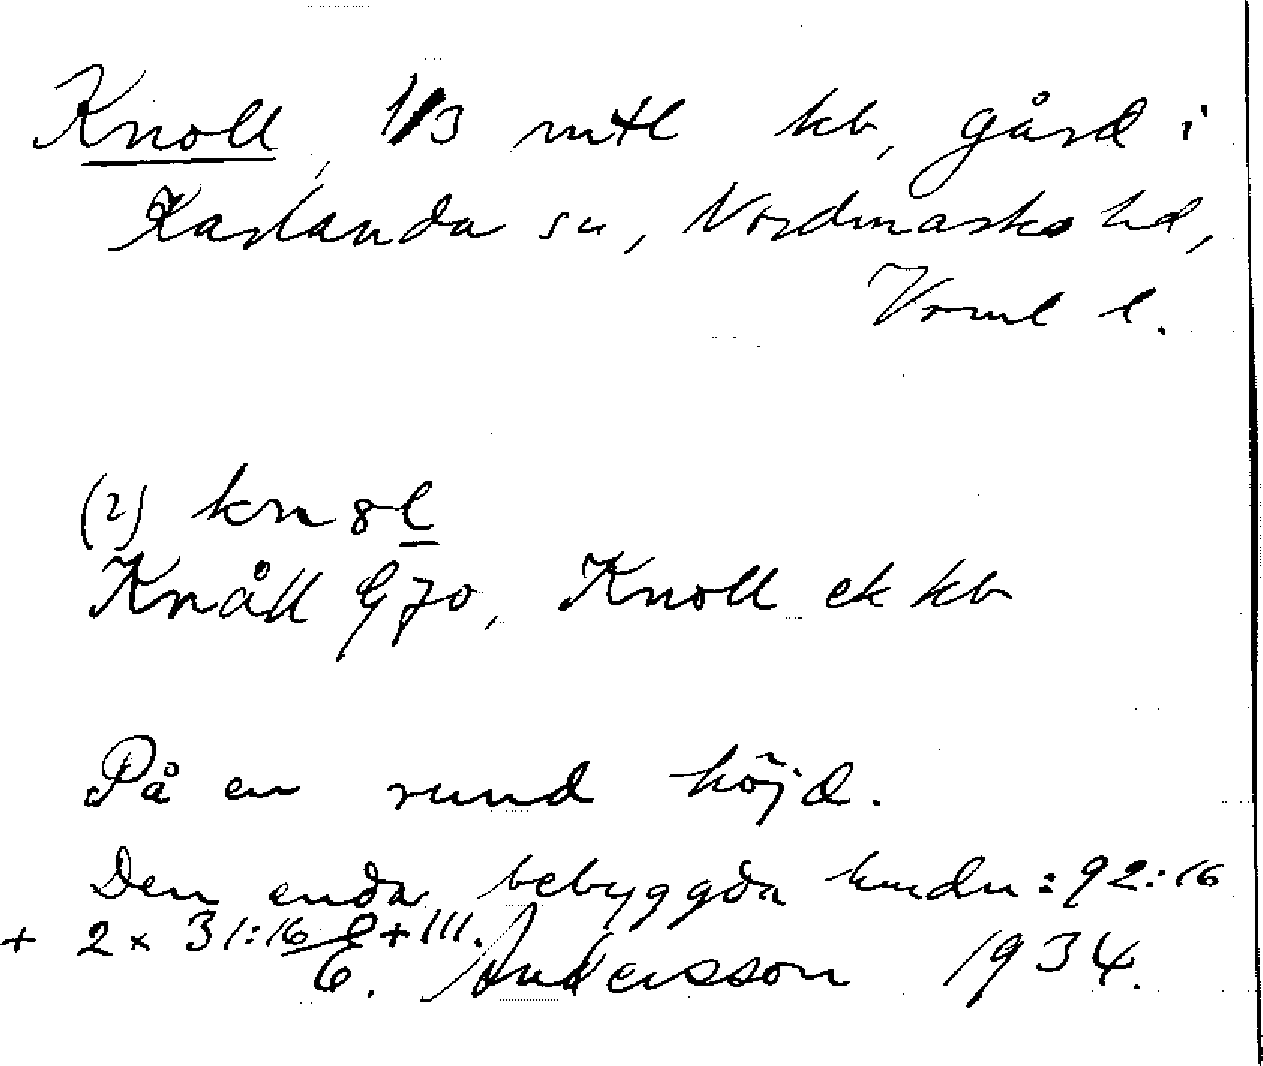 Knoll, 1/3 mtl kb, gård i
Karlanda sn, Nordmarks hd,
Vrml l.
(2) kn8l
Knåll GJo, Knoll ek kb
På en rund höjd.
Den enda bebyggda : 92:16
+ 2 x 31:16 + III.
E. Andersson 1934.